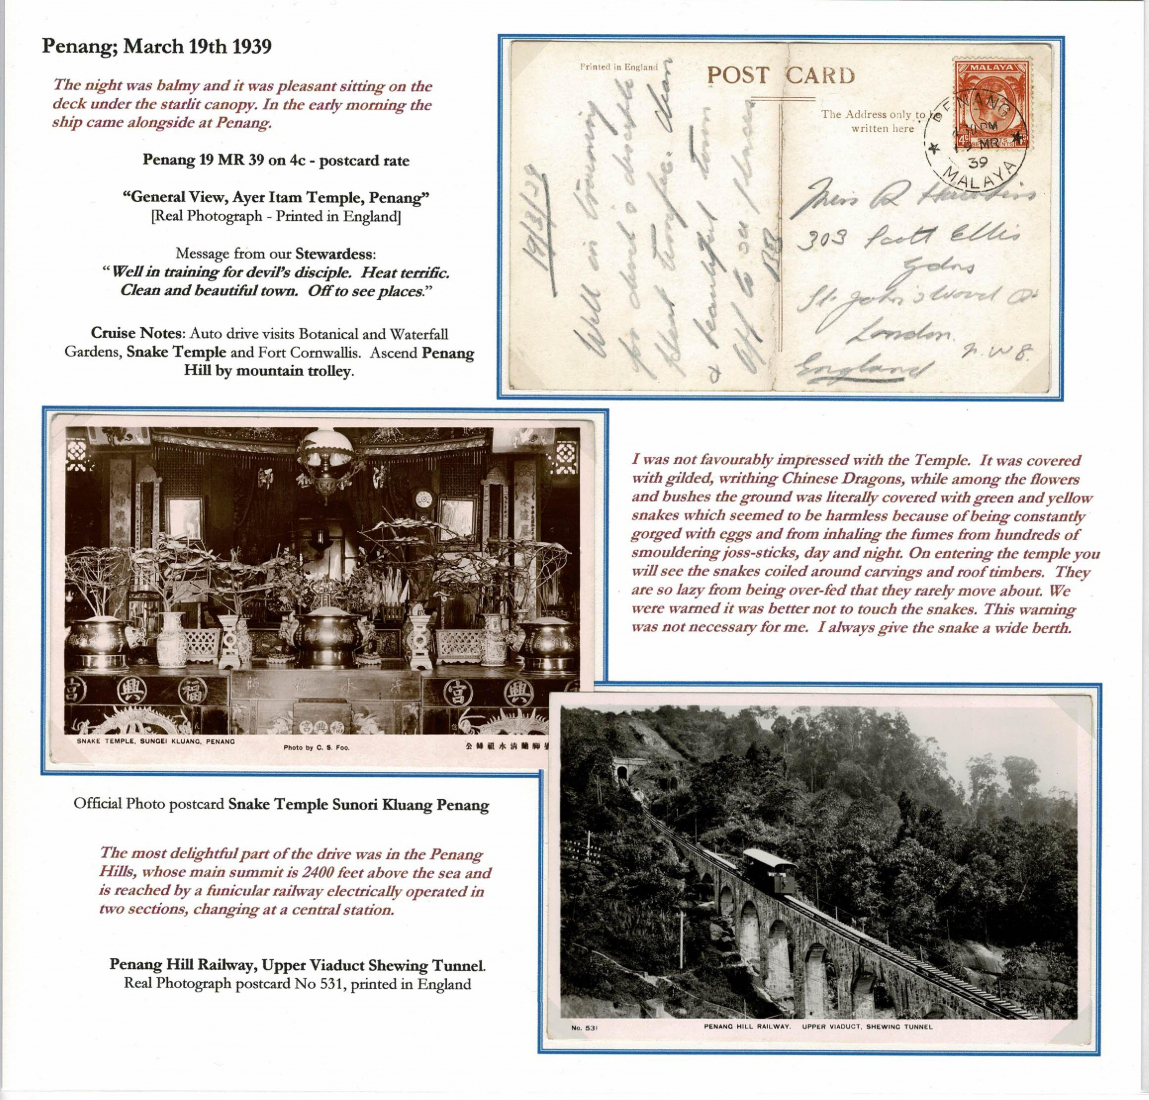 Penang; March 19th 1939
The night was balmy and it was pleasant sitting on the
deck under the starlit canopy. In the early morning the
ship came alongside at Penang.
Penang 19 MR 39 on 4c - postcard rate
“General View, Ayer Itam Temple, Penang”
[Real Photograph - Printed in England]
Message from our Stewardess:
“Well in training for devil's disciple. Heat terrific.
Clean and beautiful town. Off to see places.”
Cruise Notes: Auto drive visits Botanical and Waterfall
Gardens, Snake Temple and Fort Cornwallis. Ascend Penang
Hill by mountain trolley.
Printed in England
POST CARD
The Address only to be
written here
MALAYA
PENANG
PM
19 MR
39
MALAYA
19/3/39
Well in training
for devil's disciple
Heat terrific. Clean
& beautiful town
Off to see places
Miss R Hawkins
303 Scott Ellis
Gdns
St. John's Wood Rd
London.
N.W.8.
England
I was not favourably impressed with the Temple. It was covered
with gilded, writhing Chinese Dragons, while among the flowers
and bushes the ground was literally covered with green and yellow
snakes which seemed to be harmless because of being constantly
gorged with eggs and from inhaling the fumes from hundreds of
smouldering joss-sticks, day and night. On entering the temple you
will see the snakes coiled around carvings and roof timbers. They
are so lazy from being over-fed that they rarely move about. We
were warned it was better not to touch the snakes. This warning
was not necessary for me. I always give the snake a wide berth.
宮 興 福 宮 興
SNAKE TEMPLE, SUNGEI KLUANG, PENANG
Photo by C. S. Foo.
公師祖水清蘭
Official Photo postcard Snake Temple Sunori Kluang Penang
The most delightful part of the drive was in the Penang
Hills, whose main summit is 2400 feet above the sea and
is reached by a funicular railway electrically operated in
two sections, changing at a central station.
Penang Hill Railway, Upper Viaduct Shewing Tunnel.
Real Photograph postcard No 531, printed in England
No. 531
PENANG HILL RAILWAY. UPPER VIADUCT, SHEWING TUNNEL